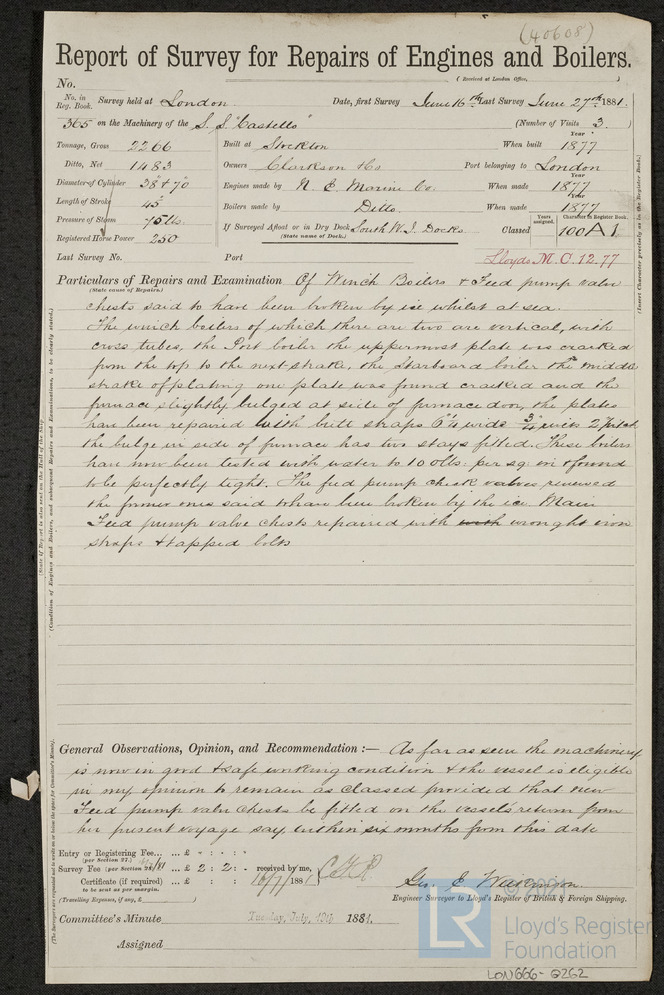 (40608)
Report of Survey for Repairs of Engines and Boilers.
No. (Received at London Office, )
No. in Reg. Book. Survey held at London Date, first Survey June 16th Last Survey June 27th 1881.
365 on the Machinery of the S.S. "Castello" (Number of Visits 3.
Tonnage, Gross 2266 Built at Stockton When built Year 1877
Ditto, Net 1483 Owners Clarkson & Co Port belonging to London
Diameter of Cylinder 38" & 70" Engines made by N. E. Marine Co. When made Year 1877
Length of Stroke 45" Boilers made by Ditto. When made Year 1877
Pressure of Steam 75 lbs. If Surveyed Afloat or in Dry Dock South W. I. Docks Classed Years assigned. Character in Register Book. 100 A 1
Registered Horse Power 250 (State name of Dock.)
Last Survey No. Port Lloyds M.C. 12.77
Particulars of Repairs and Examination Of Winch Boilers & Feed pump valve
(State cause of Repairs.)
chests said to have been broken by ice whilst at sea.
The winch boilers of which there are two are vertical, with
cross tubes, the Port boiler the uppermost plate was cracked
from the top to the next strake, the Starboard boiler the middle
strake of plating one plate was found cracked and the
furnace slightly bulged at side of furnace door, the plates
have been repaired with butt straps 6¼ wide 3/4"
the bulge in side of furnace has two stays fitted. These boilers
have now been tested with water to 100 lbs. per sq. in & found
to be perfectly tight. The feed pump check valves renewed
the former ones said to have been broken by the ice Main
Feed pump valve chests repaired with with wrought iron
straps & tapped bolts
General Observations, Opinion, and Recommendation :— As far as seen the machinery
is now in good & safe working condition & the vessel is eligible
in my opinion to remain as classed provided that new
Feed pump valve chests be fitted on the vessel's return from
her present voyage say within six months from this date
Entry or Registering Fee... ... £ : :
(per Section 27.)
Survey Fee (per Section 28) ... £ 2 : 2 : - received by me,
Certificate (if required) ... £ : : 16/7/1881
to be sent as per margin.
(Travelling Expenses, if any, £ )
Geo. E. Wilkinson.
Engineer Surveyor to Lloyd's Register of British & Foreign Shipping.
Committee's Minute Tuesday, July 1881.
Assigned
(Insert Character precisely as in the Register Book.)
(State if Report is also sent on the Hull of the Ship.
(Condition of Engines and Boilers, and subsequent Repairs and Examinations, to be clearly stated.)
(The Surveyors are requested not to write on or below the space for Committee's Minute.)
© 2021
LR Lloyd's Register
Foundation
LON666-0262